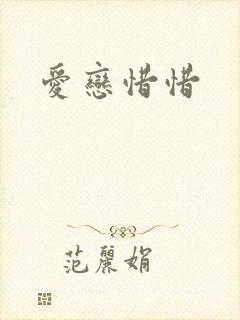 愛戀惜惜
范麗娟